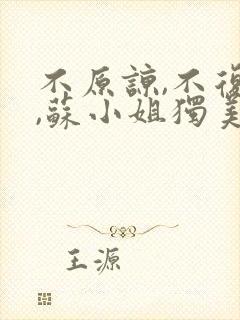 不原諒,不復
,蘇小姐獨美
王源